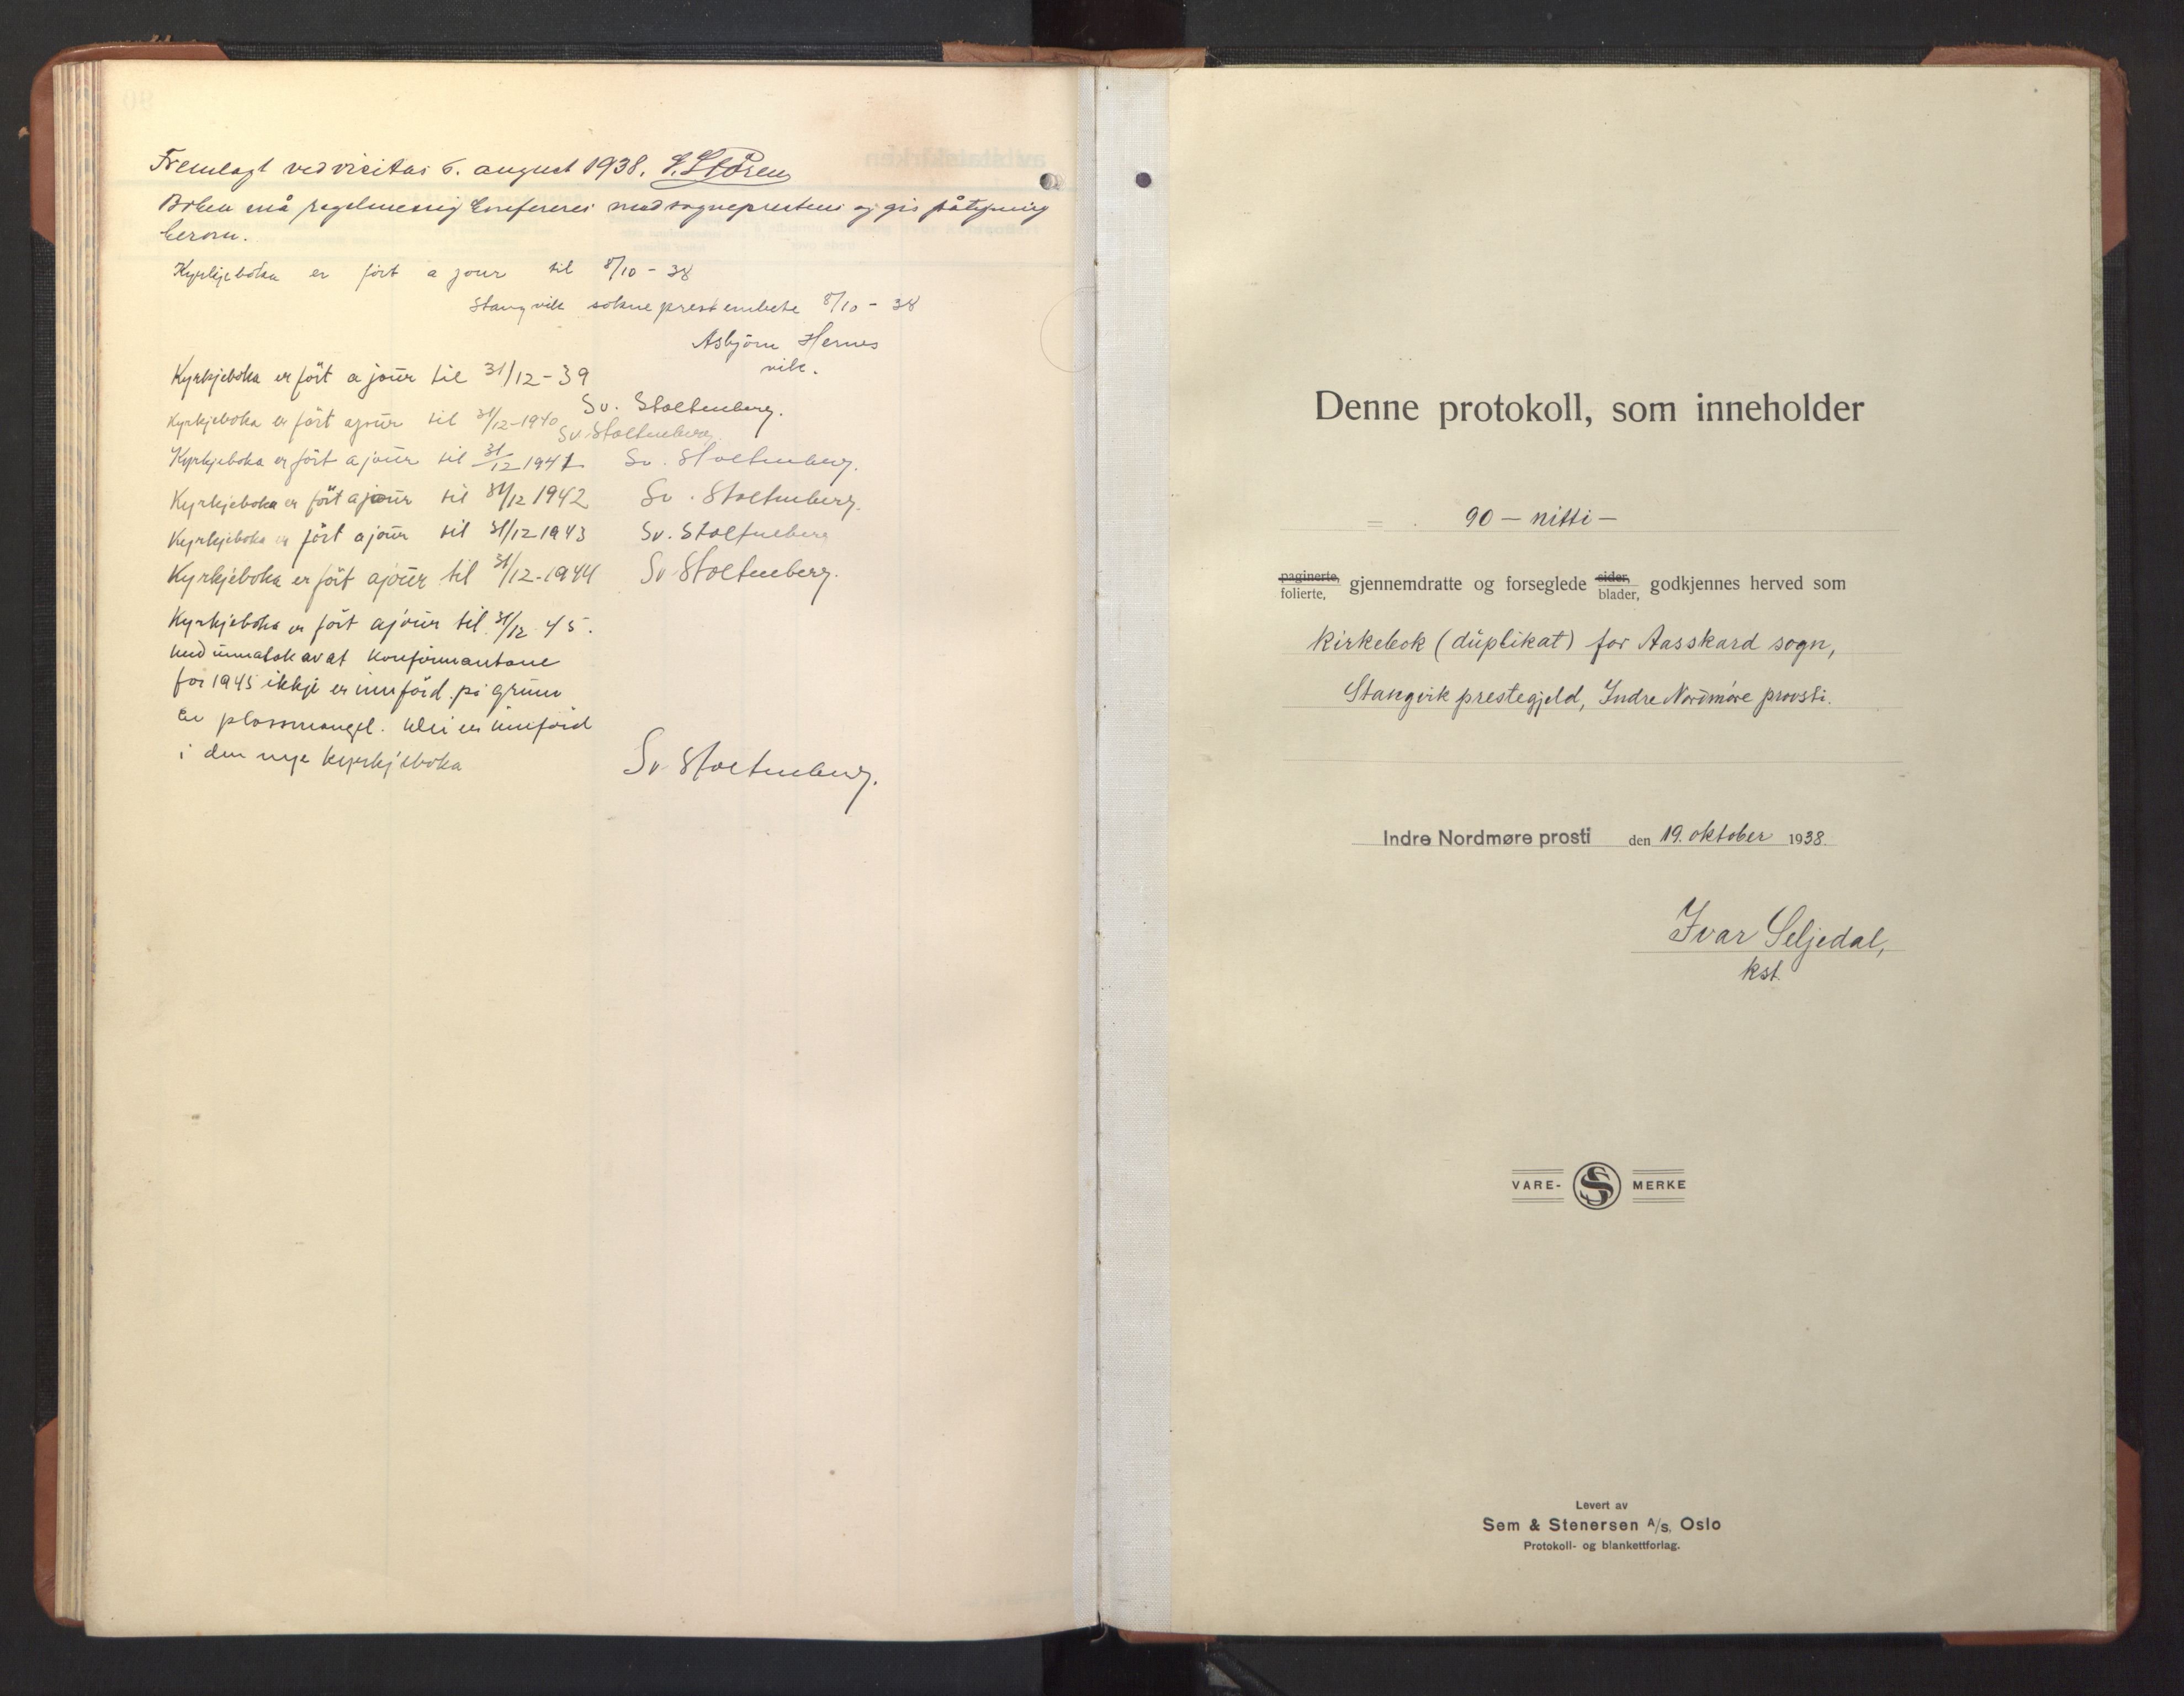 Fremlagt ved visitas 6. august 1938. S. Støren
Boken må regelmessig konfereres med sogneprestens og gis påtegning
herom.
Kyrkjeboka er ført a jour til 8/10 - 38
Stangvik sokneprestembete 8/10 - 38
Asbjörn Hernes
vik.
Kyrkjeboka er fört a jour til 31/12 - 39
Sv. Stoltenberg.
Kyrkjeboka er fört ajour til 31/12 - 1940
Sv. Stoltenberg
Kyrkjeboka er fört a jour til 31/12 1941 Sv. Stoltenberg.
Kyrkjeboka er fört ajour til 31/12 1942 Sv. Stoltenberg.
Kyrkjeboka er fört ajour til 31/12 1943 Sv. Stoltenberg
Kyrkjeboka er fört ajour til 31/12 - 1944 Sv Stoltenberg.
Kyrkjeboka er fört ajour til 31/12 45.
med unnatak av at konfirmantane
for 1945 ikkje er innförd på grunn
av plassmangel. Dei er innförd
i den nye kyrkjeboka
Sv Stoltenberg.
Denne protokoll, som inneholder
= 90 — nitti —
paginerte, folierte, gjennemdratte og forseglede sider, blader, godkjennes herved som
kirkebok (duplikat) for Aasskard sogn,
Stangvik prestegjeld, Indre Nordmøre prosti.
Indre Nordmøre prosti den 19. oktober 1938.
Ivar Seljedal,
kst.
VARE- S MERKE
Levert av
Sem & Stenersen A/s, Oslo
Protokoll- og blankettforlag.